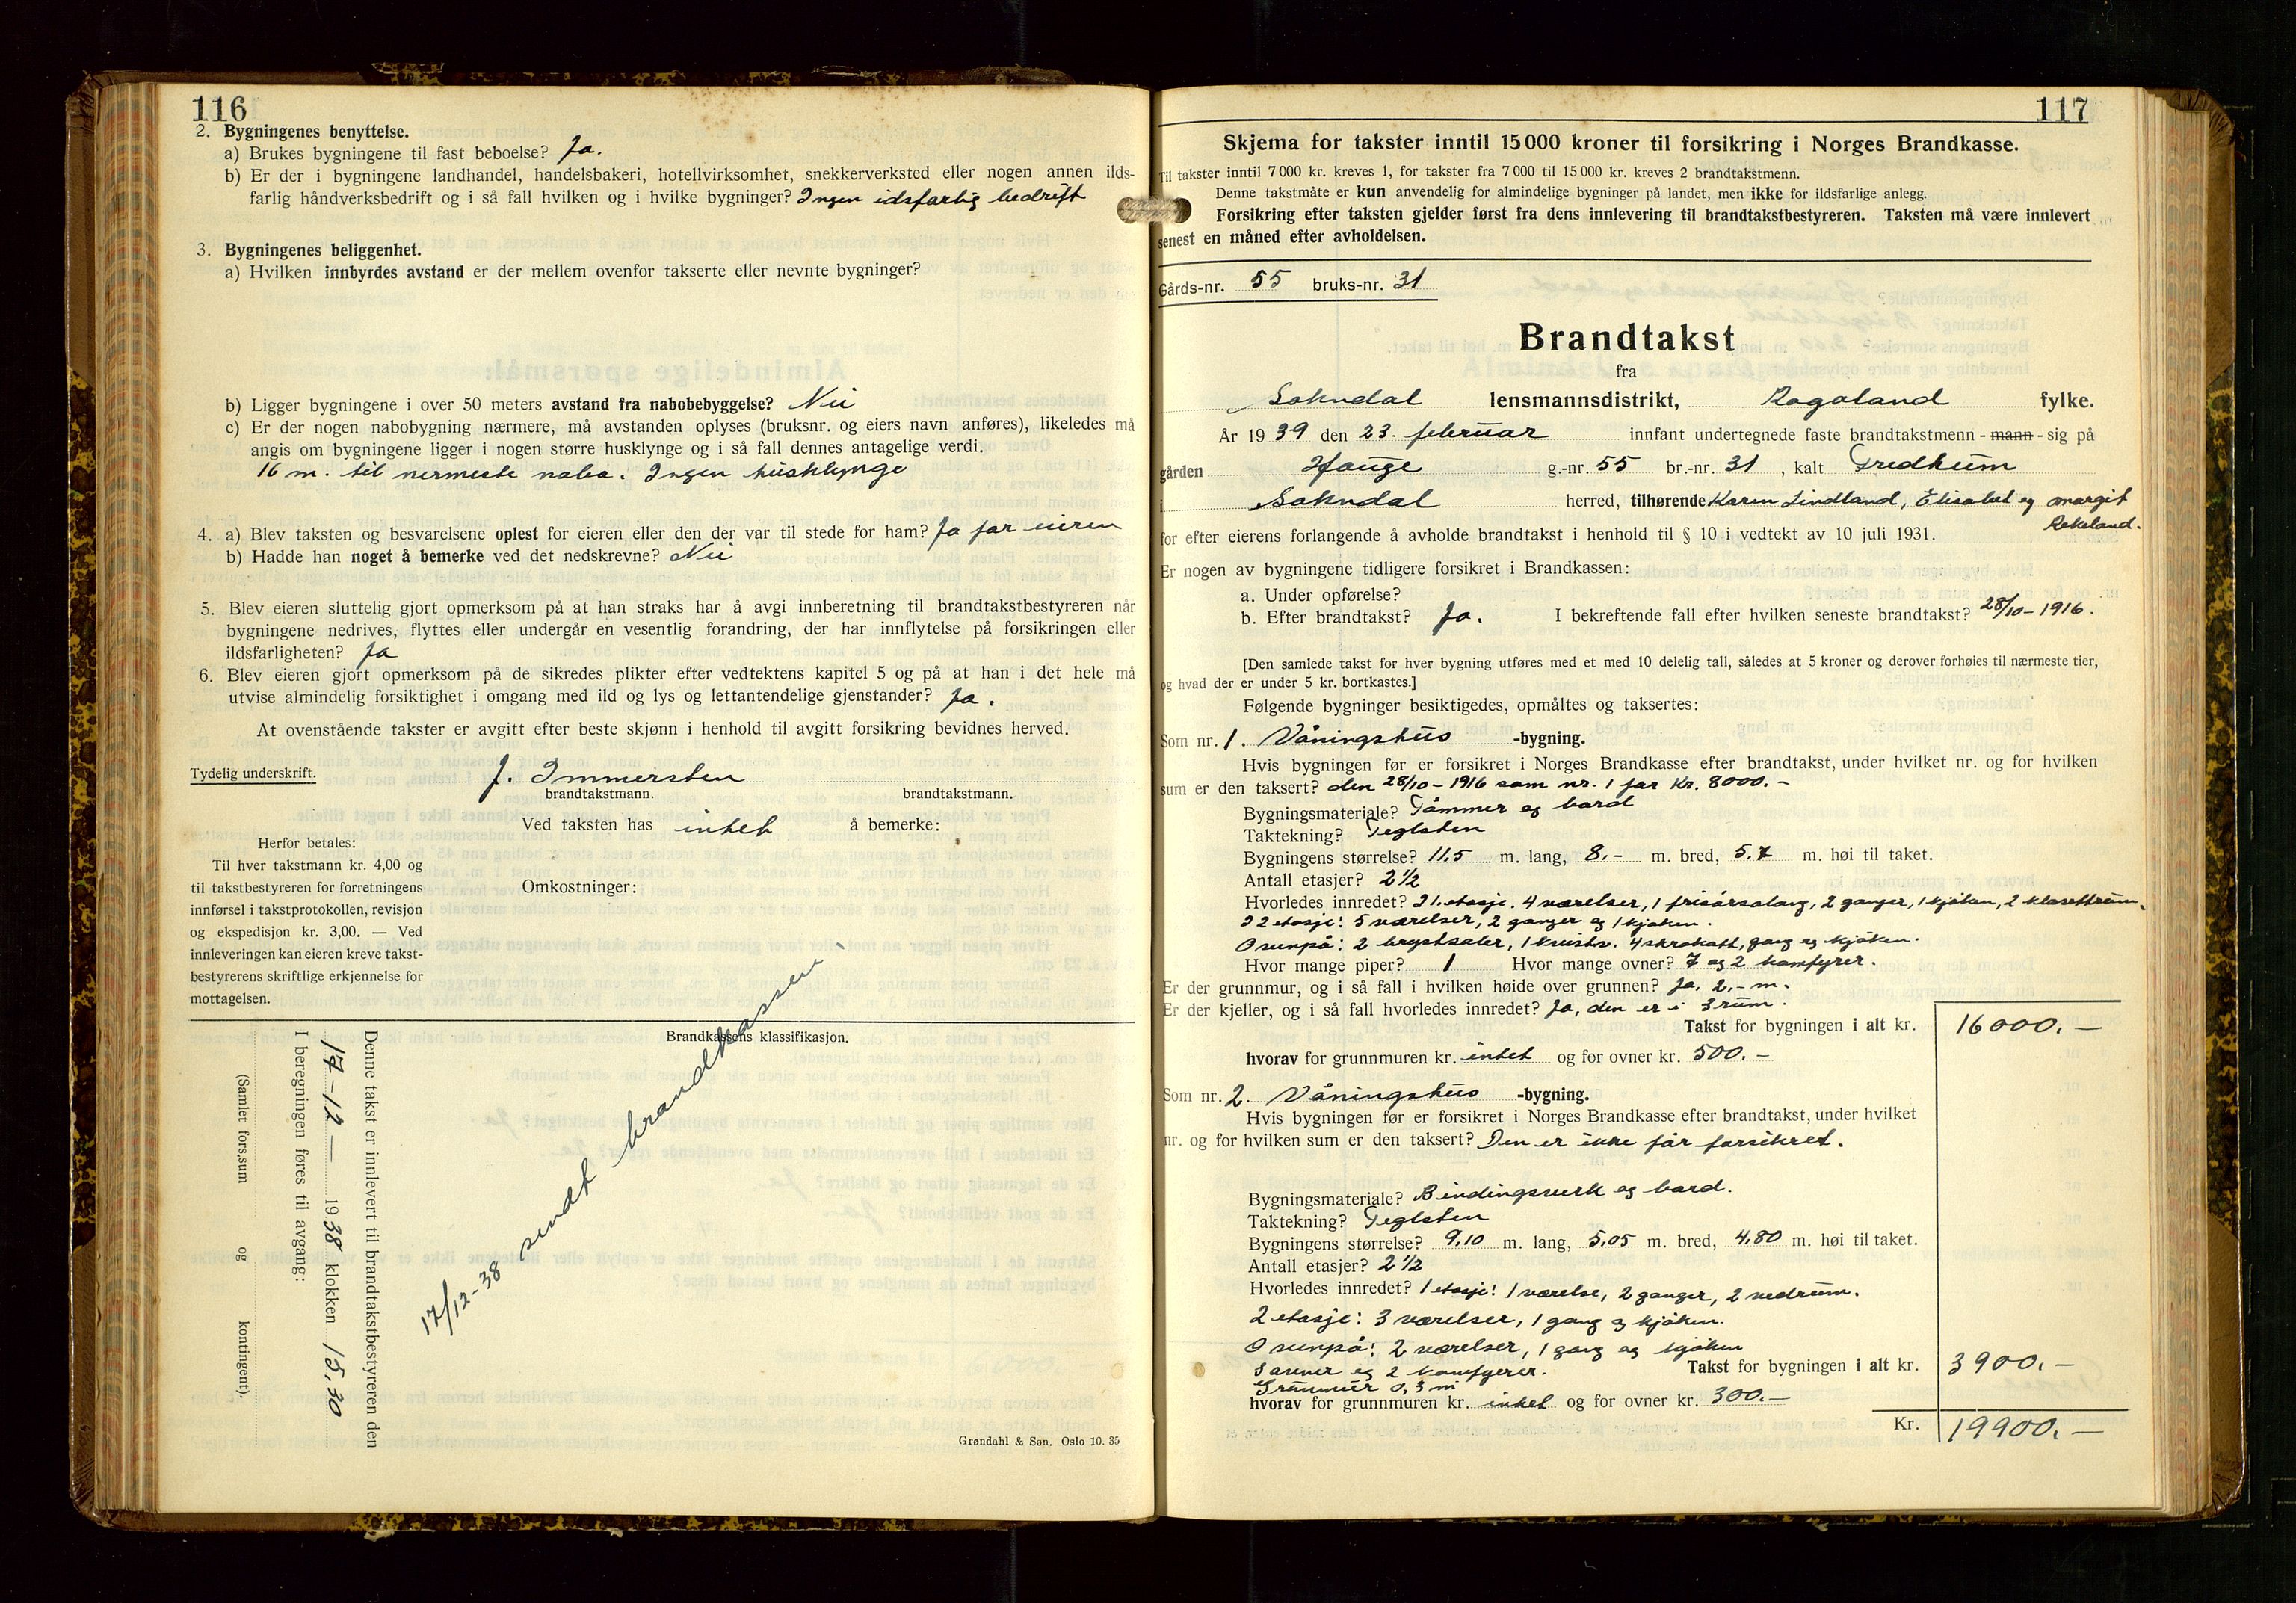 116
2. Bygningenes benyttelse.
a) Brukes bygningene til fast beboelse? Ja.
b) Er der i bygningene landhandel, handelsbakeri, hotellvirksomhet, snekkerverksted eller nogen annen ilds-
farlig håndverksbedrift og i så fall hvilken og i hvilke bygninger? Ingen idsfarlig bedrift
3. Bygningenes beliggenhet.
a) Hvilken innbyrdes avstand er der mellem ovenfor takserte eller nevnte bygninger?
b) Ligger bygningene i over 50 meters avstand fra nabobebyggelse? Nei
c) Er der nogen nabobygning nærmere, må avstanden oplyses (bruksnr. og eiers navn anføres), likeledes må
angis om bygningene ligger i nogen større husklynge og i så fall dennes antagelige verdi.
16 m. til nermeste nabo. Ingen husklynge
4. a) Blev taksten og besvarelsene oplest for eieren eller den der var til stede for ham? Ja for eieren
b) Hadde han noget å bemerke ved det nedskrevne? Nei
5. Blev eieren sluttelig gjort opmerksom på at han straks har å avgi innberetning til brandtakstbestyreren når
bygningene nedrives, flyttes eller undergår en vesentlig forandring, der har innflytelse på forsikringen eller
ildsfarligheten? Ja
6. Blev eieren gjort opmerksom på de sikredes plikter efter vedtektens kapitel 5 og på at han i det hele må
utvise almindelig forsiktighet i omgang med ild og lys og lettantendelige gjenstander? Ja.
At ovenstående takster er avgitt efter beste skjønn i henhold til avgitt forsikring bevidnes herved.
Tydelig underskrift. J. Immerstein
brandtakstmann. brandtakstmann.
Ved taksten has intet å bemerke:
Herfor betales:
Til hver takstmann kr. 4,00 og
til takstbestyreren for forretningens
innførsel i takstprotokollen, revisjon
og ekspedisjon kr. 3,00. — Ved
innleveringen kan eieren kreve takst-
bestyrerens skriftlige erkjennelse for
mottagelsen.
Omkostninger:
Brandkassens klassifikasjon.
17/12-38 sendt brandkassen.
Denne takst er innlevert til brandtakstbestyreren den
17-12- 1938 klokken 15,30
I beregningen føres til avgang:
(Samlet fors.sum og kontingent).
Grøndahl & Søn, Oslo 10. 35
117
Skjema for takster inntil 15 000 kroner til forsikring i Norges Brandkasse.
Til takster inntil 7 000 kr. kreves 1, for takster fra 7 000 til 15 000 kr. kreves 2 brandtakstmenn.
Denne takstmåte er kun anvendelig for almindelige bygninger på landet, men ikke for ildsfarlige anlegg.
Forsikring efter taksten gjelder først fra dens innlevering til brandtakstbestyreren. Taksten må være innlevert
senest en måned efter avholdelsen.
Gårds-nr. 55 bruks-nr. 31
Brandtakst
fra
Sokndal lensmannsdistrikt, Rogaland fylke.
År 1939 den 23. februar innfant undertegnede faste brandtakstmenn - mann - sig på
gården Hauge g.-nr. 55 br.-nr. 31, kalt Fredheim
i Sokndal herred, tilhørende Karen Lindland, Elisabet og Margit
Rekeland.
for efter eierens forlangende å avholde brandtakst i henhold til § 10 i vedtekt av 10 juli 1931.
Er nogen av bygningene tidligere forsikret i Brandkassen:
a. Under opførelse?
b. Efter brandtakst? Ja. I bekreftende fall efter hvilken seneste brandtakst? 28/10-1916.
[Den samlede takst for hver bygning utføres med et med 10 delelig tall, således at 5 kroner og derover forhøies til nærmeste tier,
og hvad der er under 5 kr. bortkastes.]
Følgende bygninger besiktigedes, opmåltes og taksertes:
Som nr. 1. Våningshus -bygning.
Hvis bygningen før er forsikret i Norges Brandkasse efter brandtakst, under hvilket nr. og for hvilken
sum er den taksert? den 28/10-1916 som nr. 1 for Kr. 8000.-
Bygningsmateriale? Tømmer og bord
Taktekning? Teglsten
Bygningens størrelse? 11.5 m. lang, 8.- m. bred, 5.7 m. høi til taket.
Antall etasjer? 2 1/2
Hvorledes innredet? I 1. etasje. 4 værelser, 1 frisørsalong, 2 ganger, 1 kjøken, 2 klosettrum.
I 2 etasje: 5 værelser, 2 ganger og 1 kjøken.
Ovenpå: 2 brystsaler, 1 kvistv. 4 skrakott, gang og kjøken.
Hvor mange piper? 1 Hvor mange ovner? 7 og 2 komfyrer.
Er der grunnmur, og i så fall i hvilken høide over grunnen? Ja, 2,- m.
Er der kjeller, og i så fall hvorledes innredet? Ja, den er i 3 rum.
Takst for bygningen i alt kr. 16000.-
hvorav for grunnmuren kr. intet og for ovner kr. 500.-
Som nr. 2. Våningshus -bygning.
Hvis bygningen før er forsikret i Norges Brandkasse efter brandtakst, under hvilket
nr. og for hvilken sum er den taksert? Den er ikke før forsikret.
Bygningsmateriale? Bindingsverk og bord.
Taktekning? Teglsten
Bygningens størrelse? 9.10 m. lang, 5.05 m. bred, 4.80 m. høi til taket.
Antall etasjer? 2 1/2
Hvorledes innredet? 1 etasje: 1 værelse, 2 ganger, 2 vedrum.
2 etasje: 3 værelser, 1 gang og kjøken.
Ovenpå: 2 værelser, 1 gang og kjøken
5 ovner og 2 komfyrer. Takst for bygningen i alt kr. 3900.-
Grunmur 0,3 m
hvorav for grunnmuren kr. intet og for ovner kr. 300.-
Kr. 19900.-